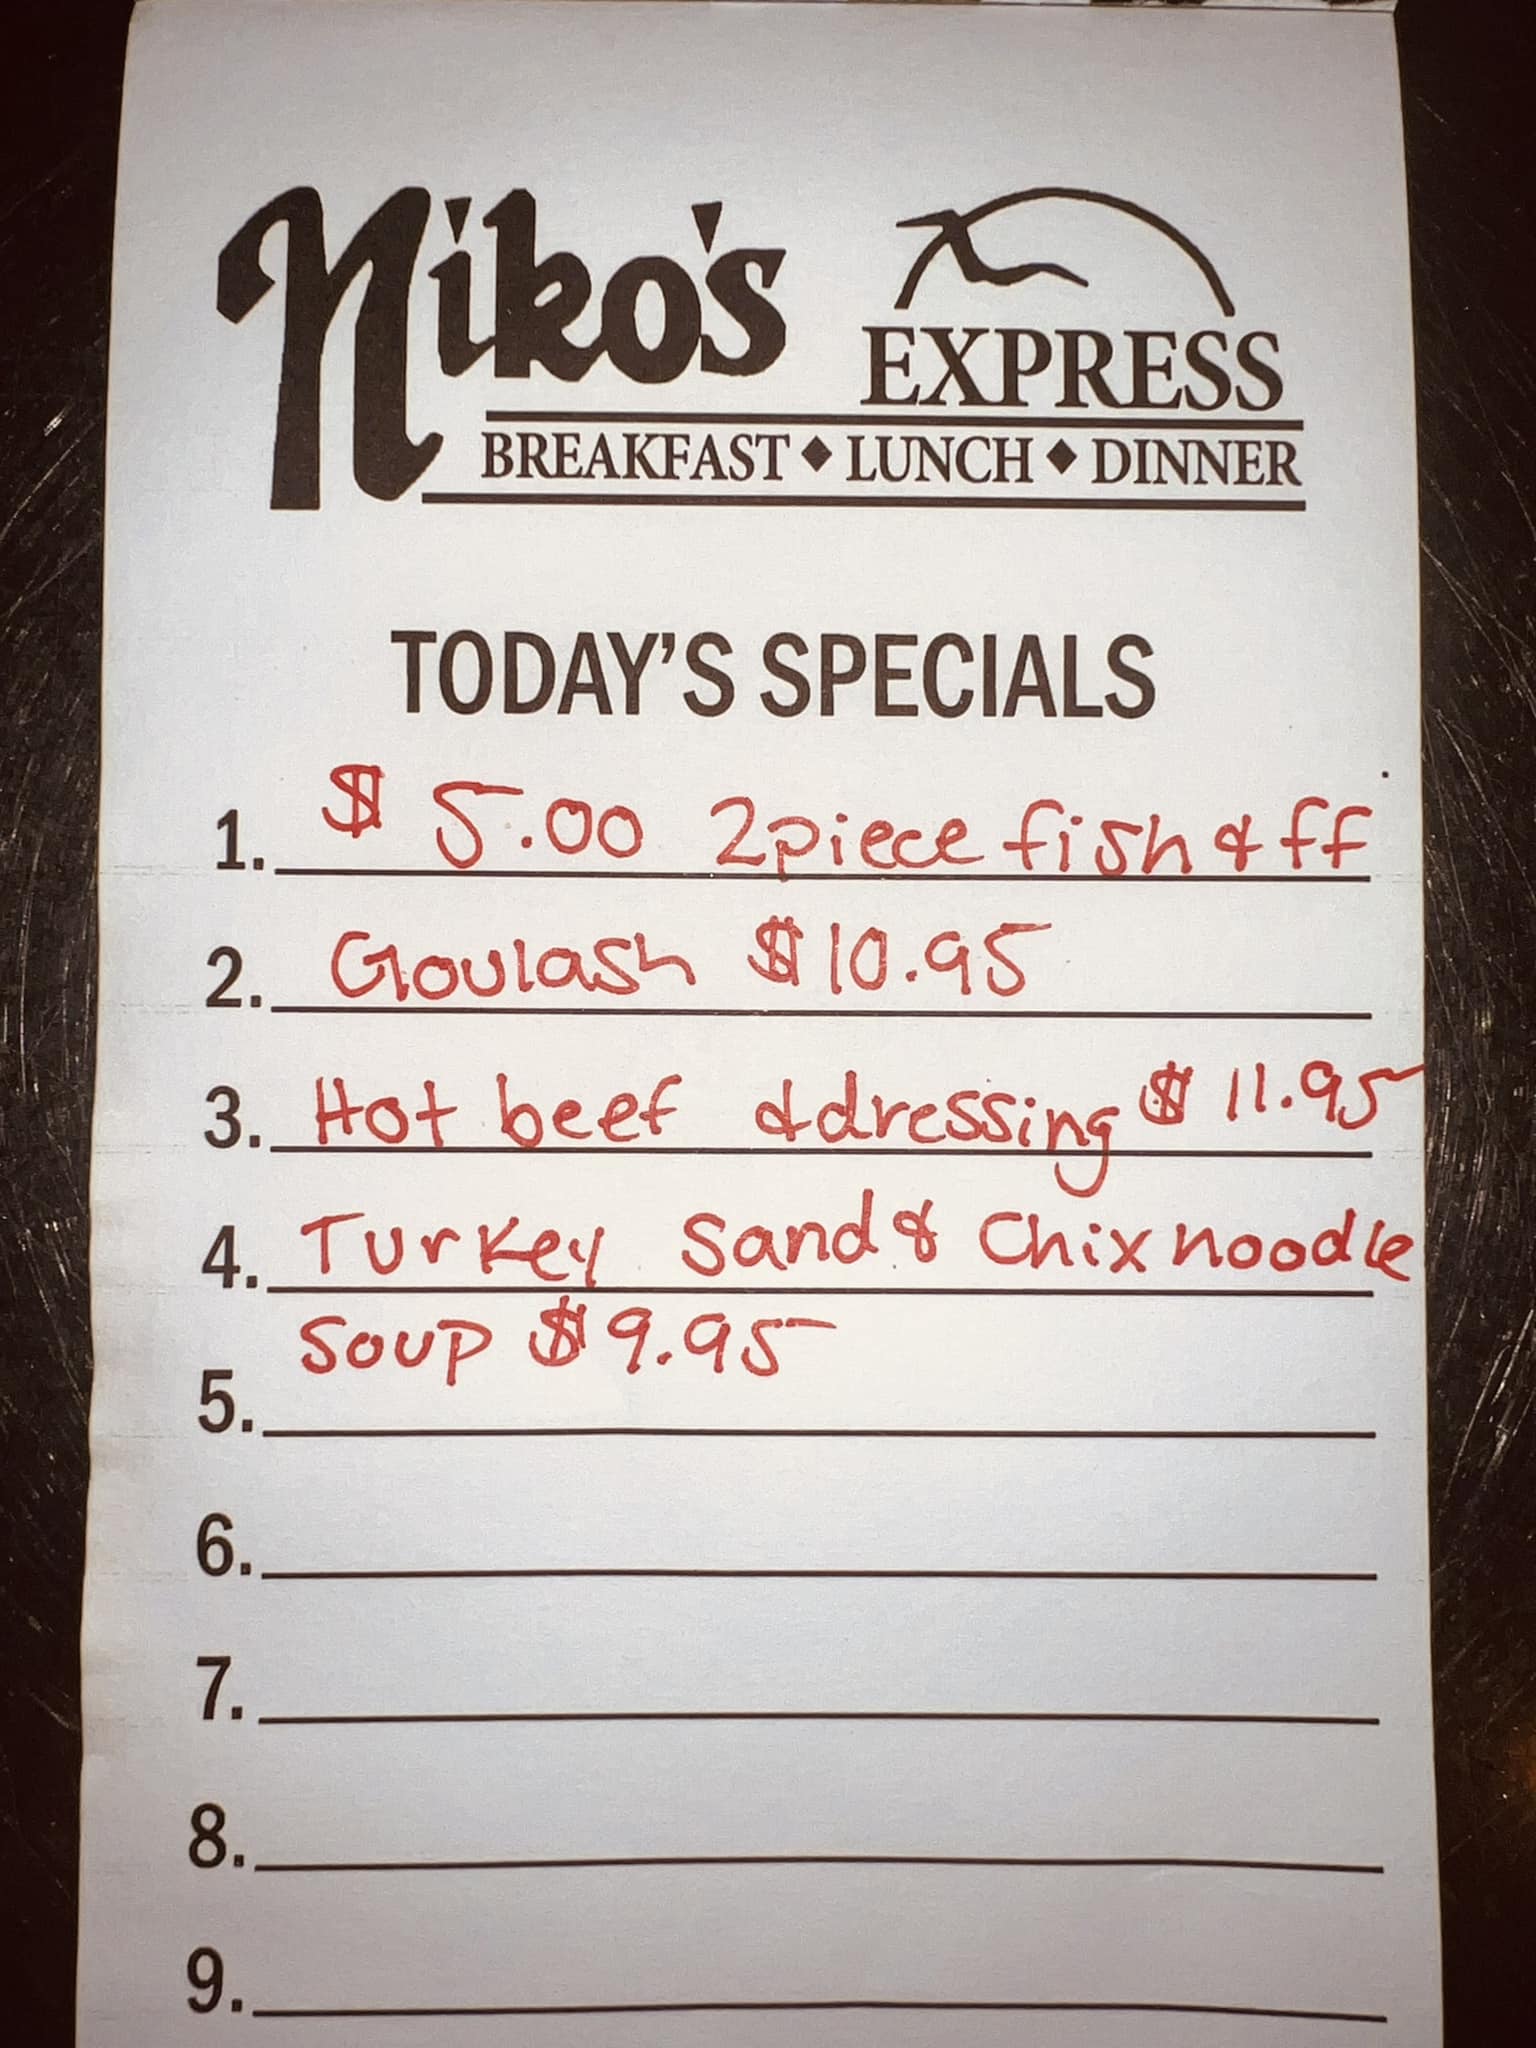 Niko's EXPRESS
BREAKFAST ◆ LUNCH ◆ DINNER
TODAY'S SPECIALS
1. $ 5.00 2piece fish & ff
2. Goulash $10.95
3. Hot beef & dressing $ 11.95
4. Turkey Sand & Chix noodle
Soup $9.95
5.
6.
7.
8.
9.